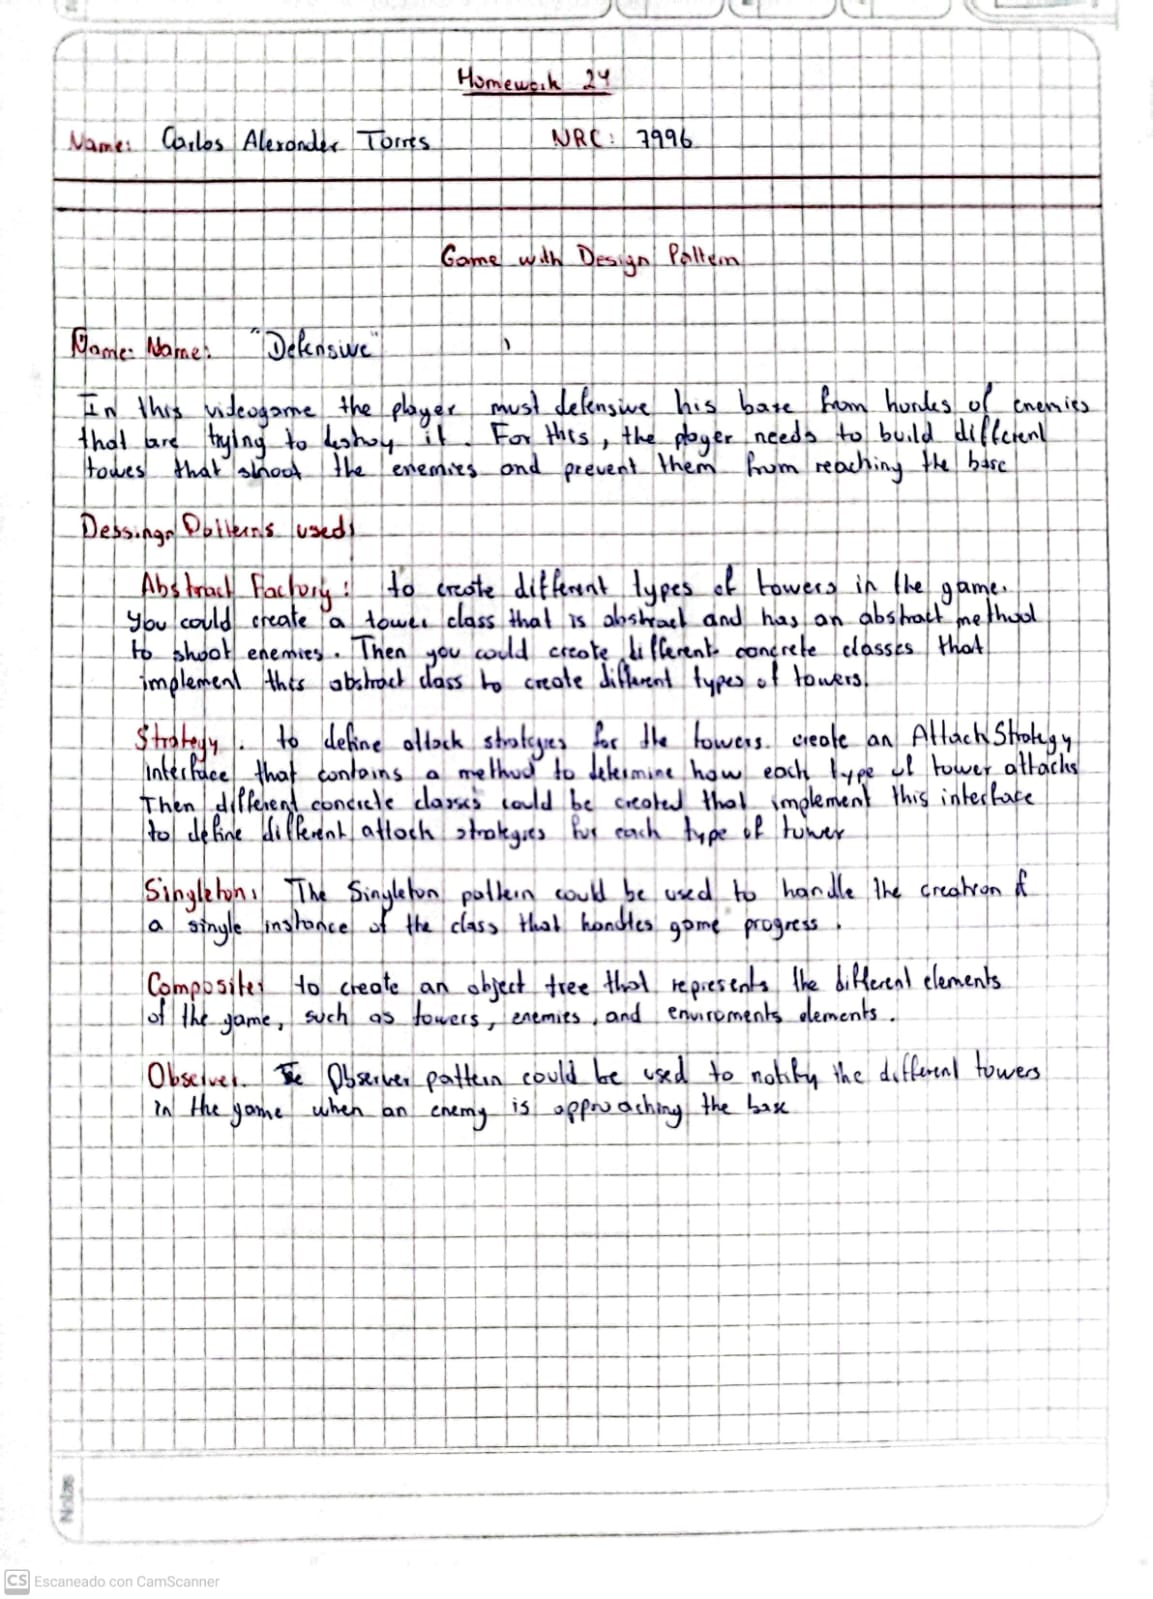 Homework 24
Name: Carlos Alexander Torres NRC: 7996
Game with Design Pattern
Name: Name: "Defensive"
In this videogame the player must defensive his base from hordes of enemies
that are trying to destroy it. For this, the player needs to build different
towes that shoot the enemies and prevent them from reaching the base
Dessingn Patterns used:
Abstract Factory: to create different types of towers in the game.
You could create a tower class that is abstract and has an abstract method
to shoot enemies. Then you could create different concrete classes that
implement this abstract class to create different types of towers.
Strategy. to define attack strategies for the towers. create an Attack Strategy
interface that contains a method to determine how each type of tower attacks
Then different concrete classes could be created that implement this interface
to define different attack strategies for each type of tower
Singleton: The Singleton pattern could be used to handle the creation of
a single instance of the class that handles game progress.
Composite: to create an object tree that represents the different elements
of the game, such as towers, enemies, and enviroments elements.
Observer. The Observer pattern could be used to notify the different towers
in the game when an enemy is approaching the base
Notas
CS Escaneado con CamScanner